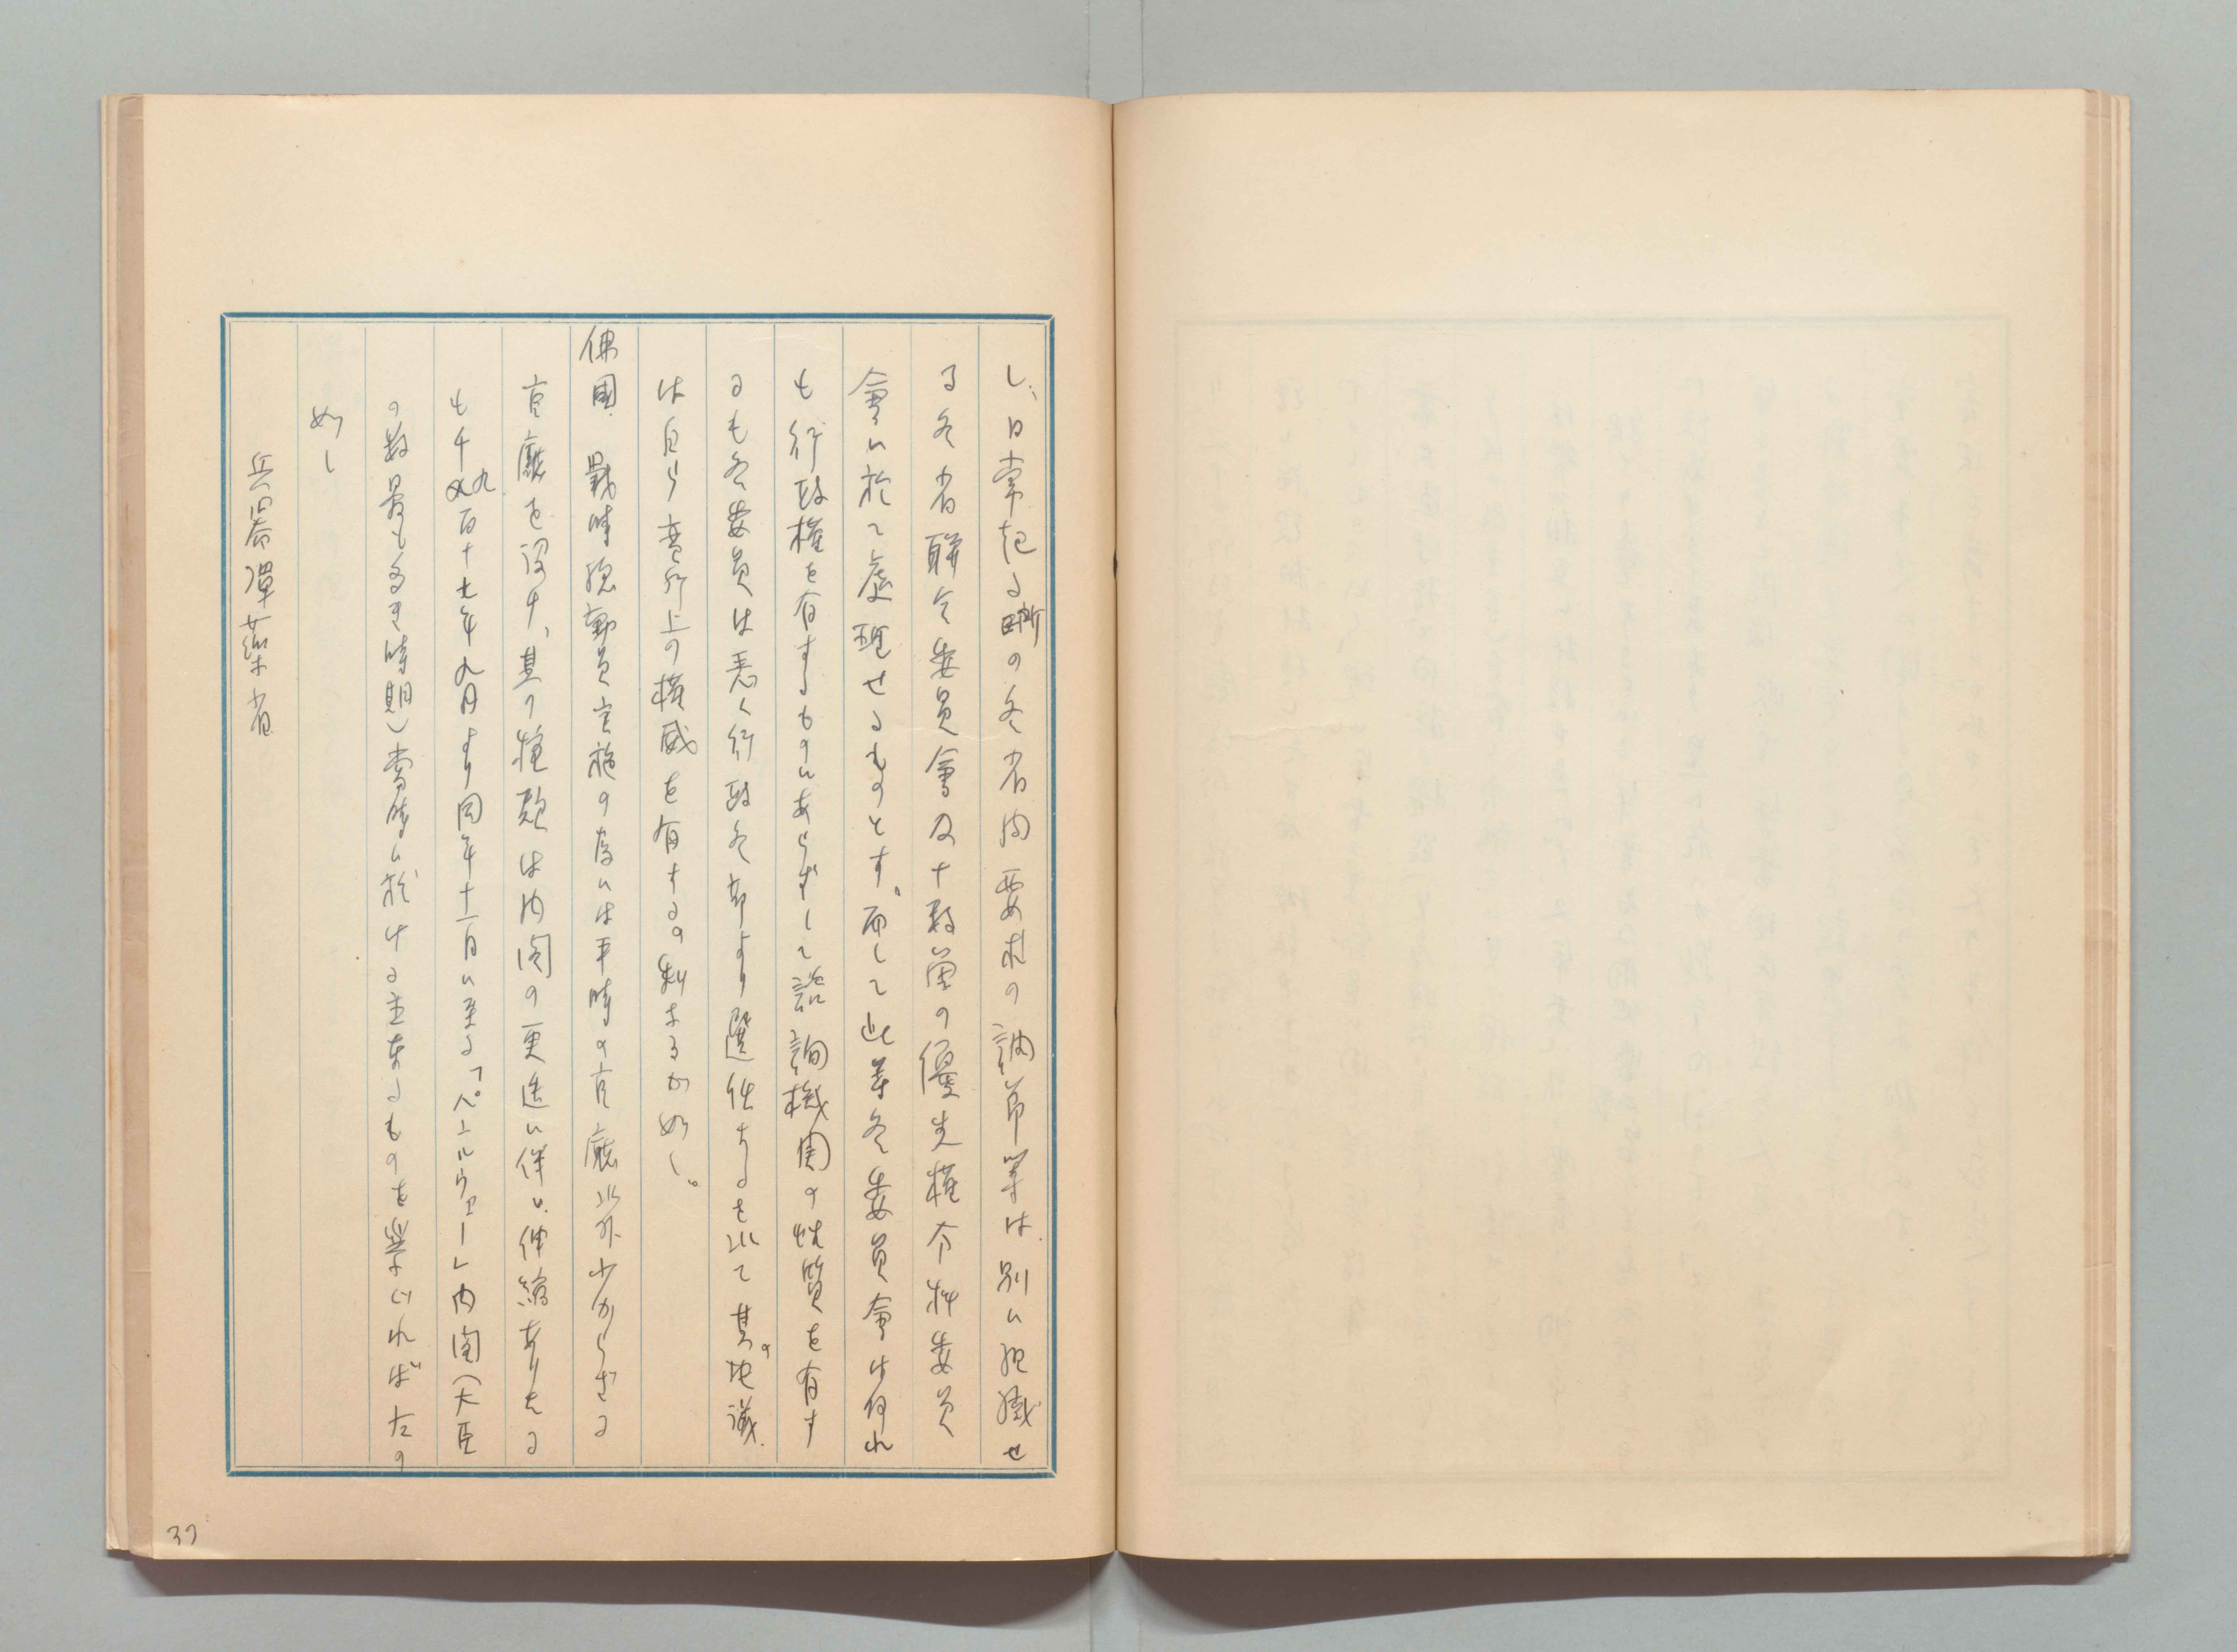 し、日常起る所の各省間要求の調節等は別に組織せ
る各省聯合委員会及十数箇の優先権分科委員
會に於て處理せるものとす。而して此等各委員會は何れ
も行政権を有するものにあらずして諮詢機関の性質を有す
るも各委員は悉く行政各部より選任するを以て其の地議
は自ら意行上の権威を有するの利あるが如し。
佛國 戦時総動員実施の為には平時の官廳以外少からざる
官廳を設け、其の種類は内閣の更迭に伴ひ伸縮ありたる
も千九百十七年九月より同年十一月に至る「ペンルヴェー」内閣(大臣
の数最も多き時期)當時に於ける主要なるものを挙ぐれば左の
如し
兵器弾薬省
37